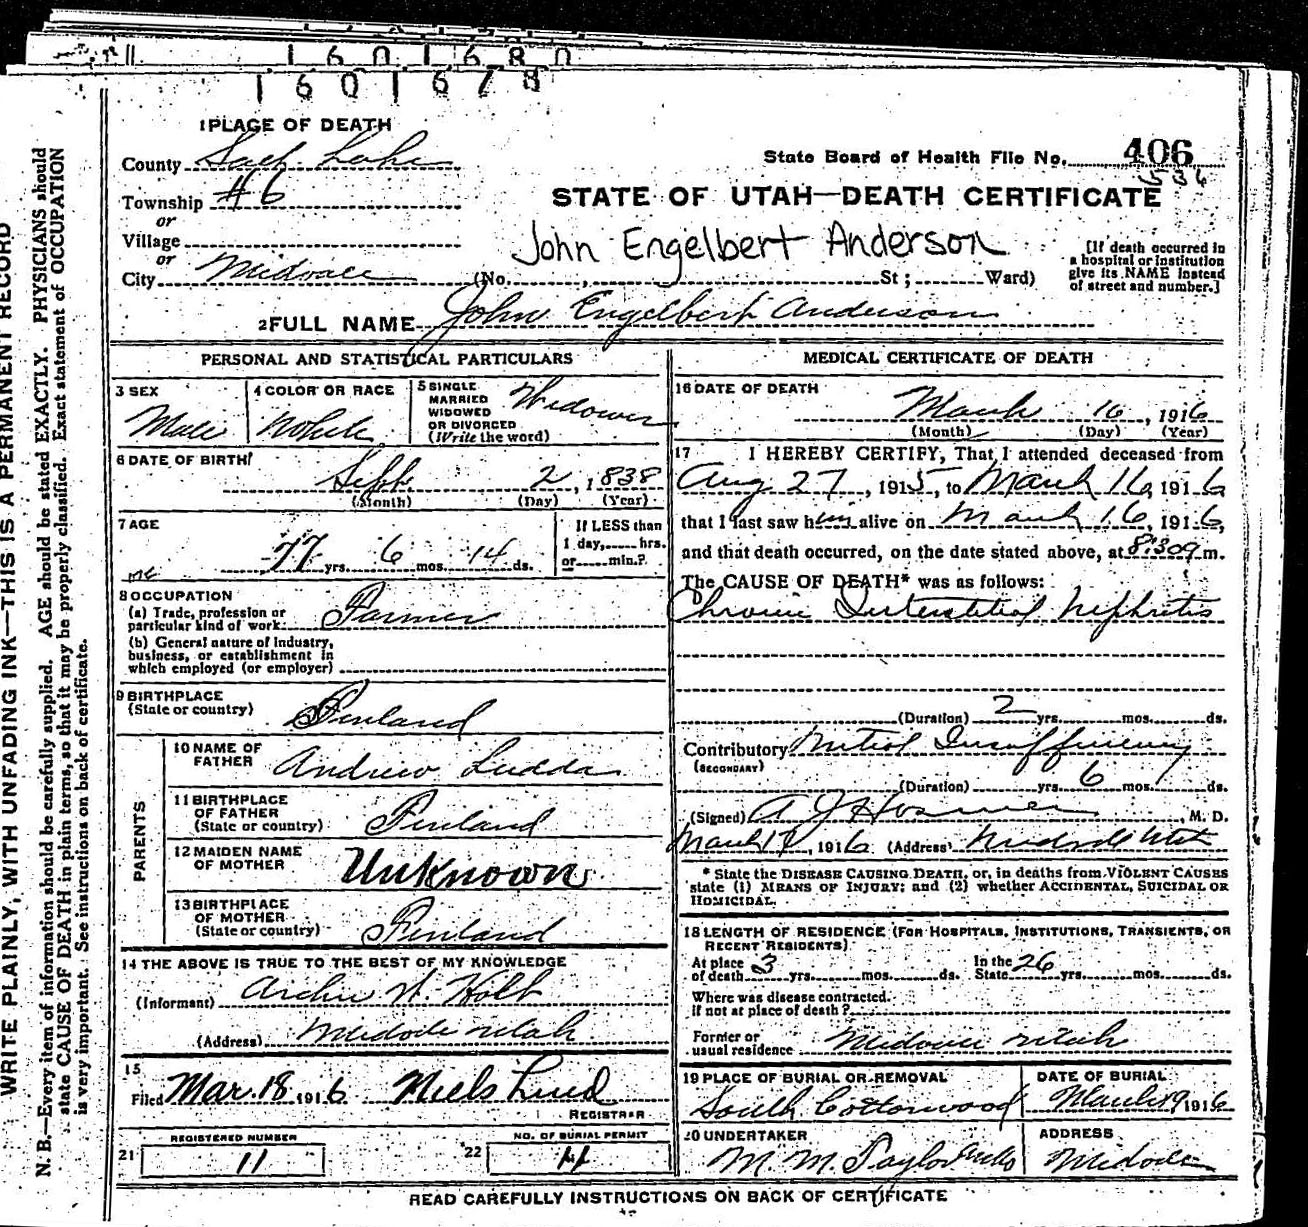 1601680
1601678
WRITE PLAINLY, WITH UNFADING INK—THIS IS A PERMANENT RECORD
N. B.—Every item of information should be carefully supplied. AGE should be stated EXACTLY. PHYSICIANS should
state CAUSE OF DEATH in plain terms, so that it may be properly classified. Exact statement of OCCUPATION
is very important. See instructions on back of certificate.
1 PLACE OF DEATH
County Salt Lake
State Board of Health File No. 406
536
Township #6
STATE OF UTAH—DEATH CERTIFICATE
or
Village
or
John Engelbert Anderson
[If death occurred in
a hospital or institution
give its NAME instead
of street and number.]
City Midvale (No. , St ; Ward)
2 FULL NAME John Engelbert Anderson
PERSONAL AND STATISTICAL PARTICULARS
3 SEX
Male
4 COLOR OR RACE
White
5 SINGLE
MARRIED
WIDOWED
OR DIVORCED
(Write the word)
Widower
6 DATE OF BIRTH
Sept 2, 1838
(Month) (Day) (Year)
7 AGE
77 yrs. 6 mos. 14 ds.
If LESS than
1 day, hrs.
or min.?
8 OCCUPATION
(a) Trade, profession or
particular kind of work. Farmer
(b) General nature of industry,
business, or establishment in
which employed (or employer)
9 BIRTHPLACE
(State or country) Finland
PARENTS
10 NAME OF
FATHER Andrew
11 BIRTHPLACE
OF FATHER
(State or country) Finland
12 MAIDEN NAME
OF MOTHER Unknown
13 BIRTHPLACE
OF MOTHER
(State or country) Finland
14 THE ABOVE IS TRUE TO THE BEST OF MY KNOWLEDGE
(Informant) Archie W. Holt
(Address) Midvale Utah
15
Filed Mar. 18 1916 Niels Lind
REGISTRAR
REGISTERED NUMBER
21 11
NO. OF BURIAL PERMIT
22 11
MEDICAL CERTIFICATE OF DEATH
16 DATE OF DEATH
March 16, 1916
(Month) (Day) (Year)
17 I HEREBY CERTIFY, That I attended deceased from
Aug 27, 1915, to March 16, 1916
that I last saw him alive on March 16, 1916,
and that death occurred, on the date stated above, at 8:30 m.
The CAUSE OF DEATH* was as follows:
Chronic Interstitial Nephritis
(Duration) 2 yrs. mos. ds.
Contributory Mitral Insufficiency
(SECONDARY)
(Duration) yrs. 6 mos. ds.
(Signed) A J Hosmer, M. D.
March 17, 1916 (Address) Midvale Utah
* State the DISEASE CAUSING DEATH, or, in deaths from VIOLENT CAUSES
state (1) MEANS OF INJURY; and (2) whether ACCIDENTAL, SUICIDAL OR
HOMICIDAL.
18 LENGTH OF RESIDENCE (FOR HOSPITALS, INSTITUTIONS, TRANSIENTS, OR
RECENT RESIDENTS)
At place
of death 3 yrs. mos. ds. In the
State 26 yrs. mos. ds.
Where was disease contracted.
If not at place of death?
Former or
usual residence Midvale Utah
19 PLACE OF BURIAL OR REMOVAL
South Cottonwood
DATE OF BURIAL
March 19 1916
20 UNDERTAKER
M. M. Taylor
ADDRESS
Midvale
READ CAREFULLY INSTRUCTIONS ON BACK OF CERTIFICATE